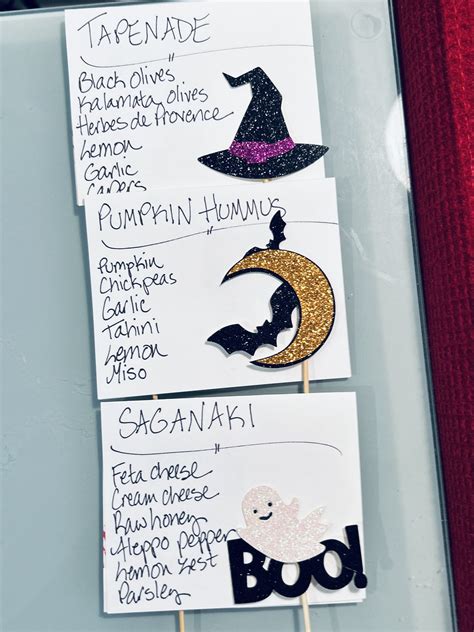 TAPENADE
Black Olives
Kalamata olives
Herbes de Provence
Lemon
Garlic
Capers
PUMPKIN HUMMUS
Pumpkin
Chickpeas
Garlic
Tahini
Lemon
Miso
SAGANAKI
Feta cheese
Cream cheese
Raw honey
Aleppo pepper
Lemon zest
Parsley
BOO!